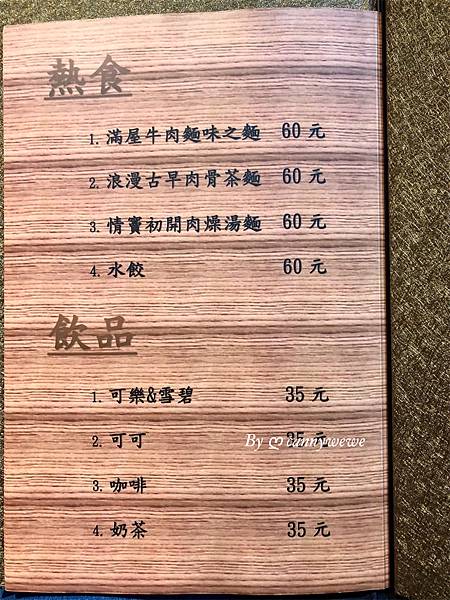 熱食
1. 滿屋牛肉麵味之麵 60 元
2. 浪漫古早肉骨茶麵 60 元
3. 情竇初開肉燥湯麵 60 元
4. 水餃 60 元
飲品
1. 可樂&雪碧 35 元
2. 可可 35 元
By ♡ cannywewe
3. 咖啡 35 元
4. 奶茶 35 元